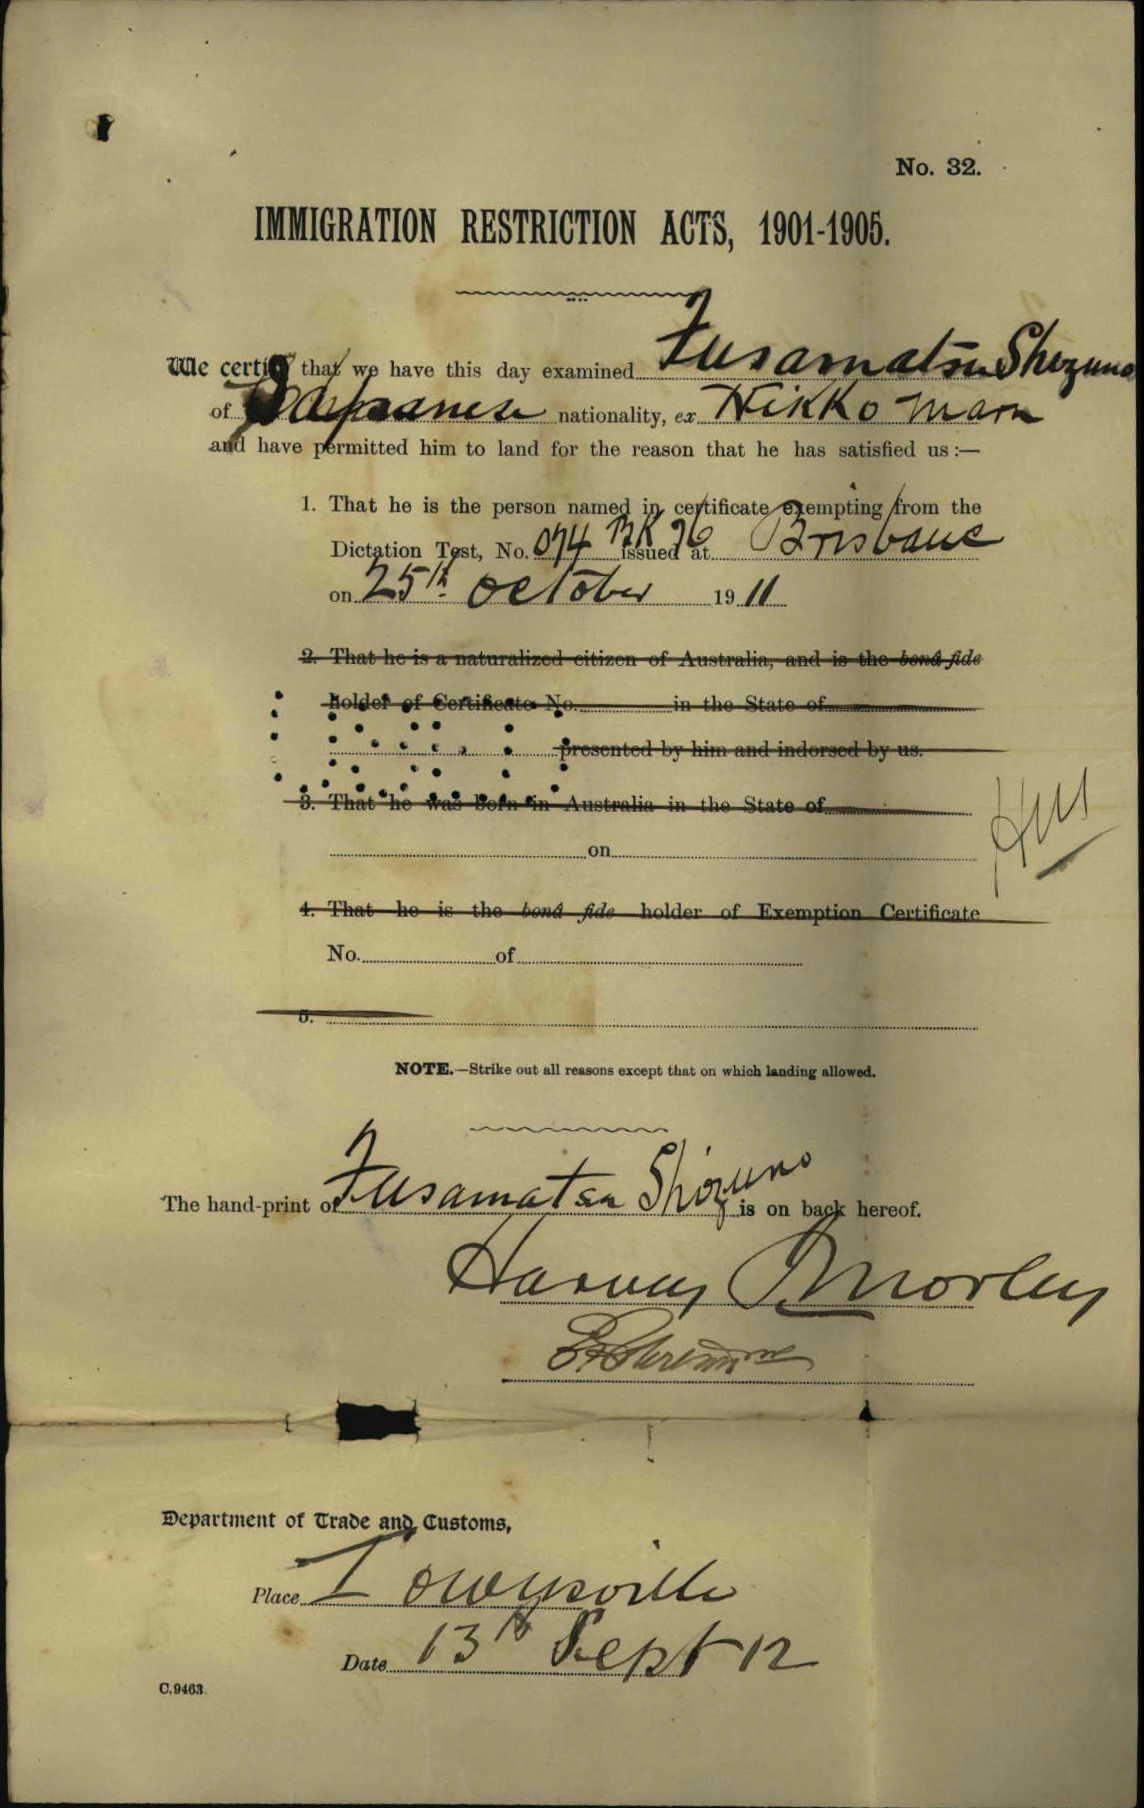 No. 32.
IMMIGRATION RESTRICTION ACTS, 1901-1905.
We certify that we have this day examined Fusamatsu Shozuno
of Japanese nationality, ex Nikko Maru
and have permitted him to land for the reason that he has satisfied us :—
1. That he is the person named in certificate exempting from the
Dictation Test, No. 074 BK 76 issued at Brisbane
on 25th October 1911
2. That he is a naturalized citizen of Australia, and is the bonâ fide
holder of Certificate No. in the State of
presented by him and indorsed by us.
3. That he was born in Australia in the State of
on
4. That he is the bonâ fide holder of Exemption Certificate
No. of
5.
NOTE.—Strike out all reasons except that on which landing allowed.
The hand-print of Fusamatsu Shozuno is on back hereof.
Harvey Morley
Department of Trade and Customs,
Place Townsville
Date 13th Sept 12
C.9463.